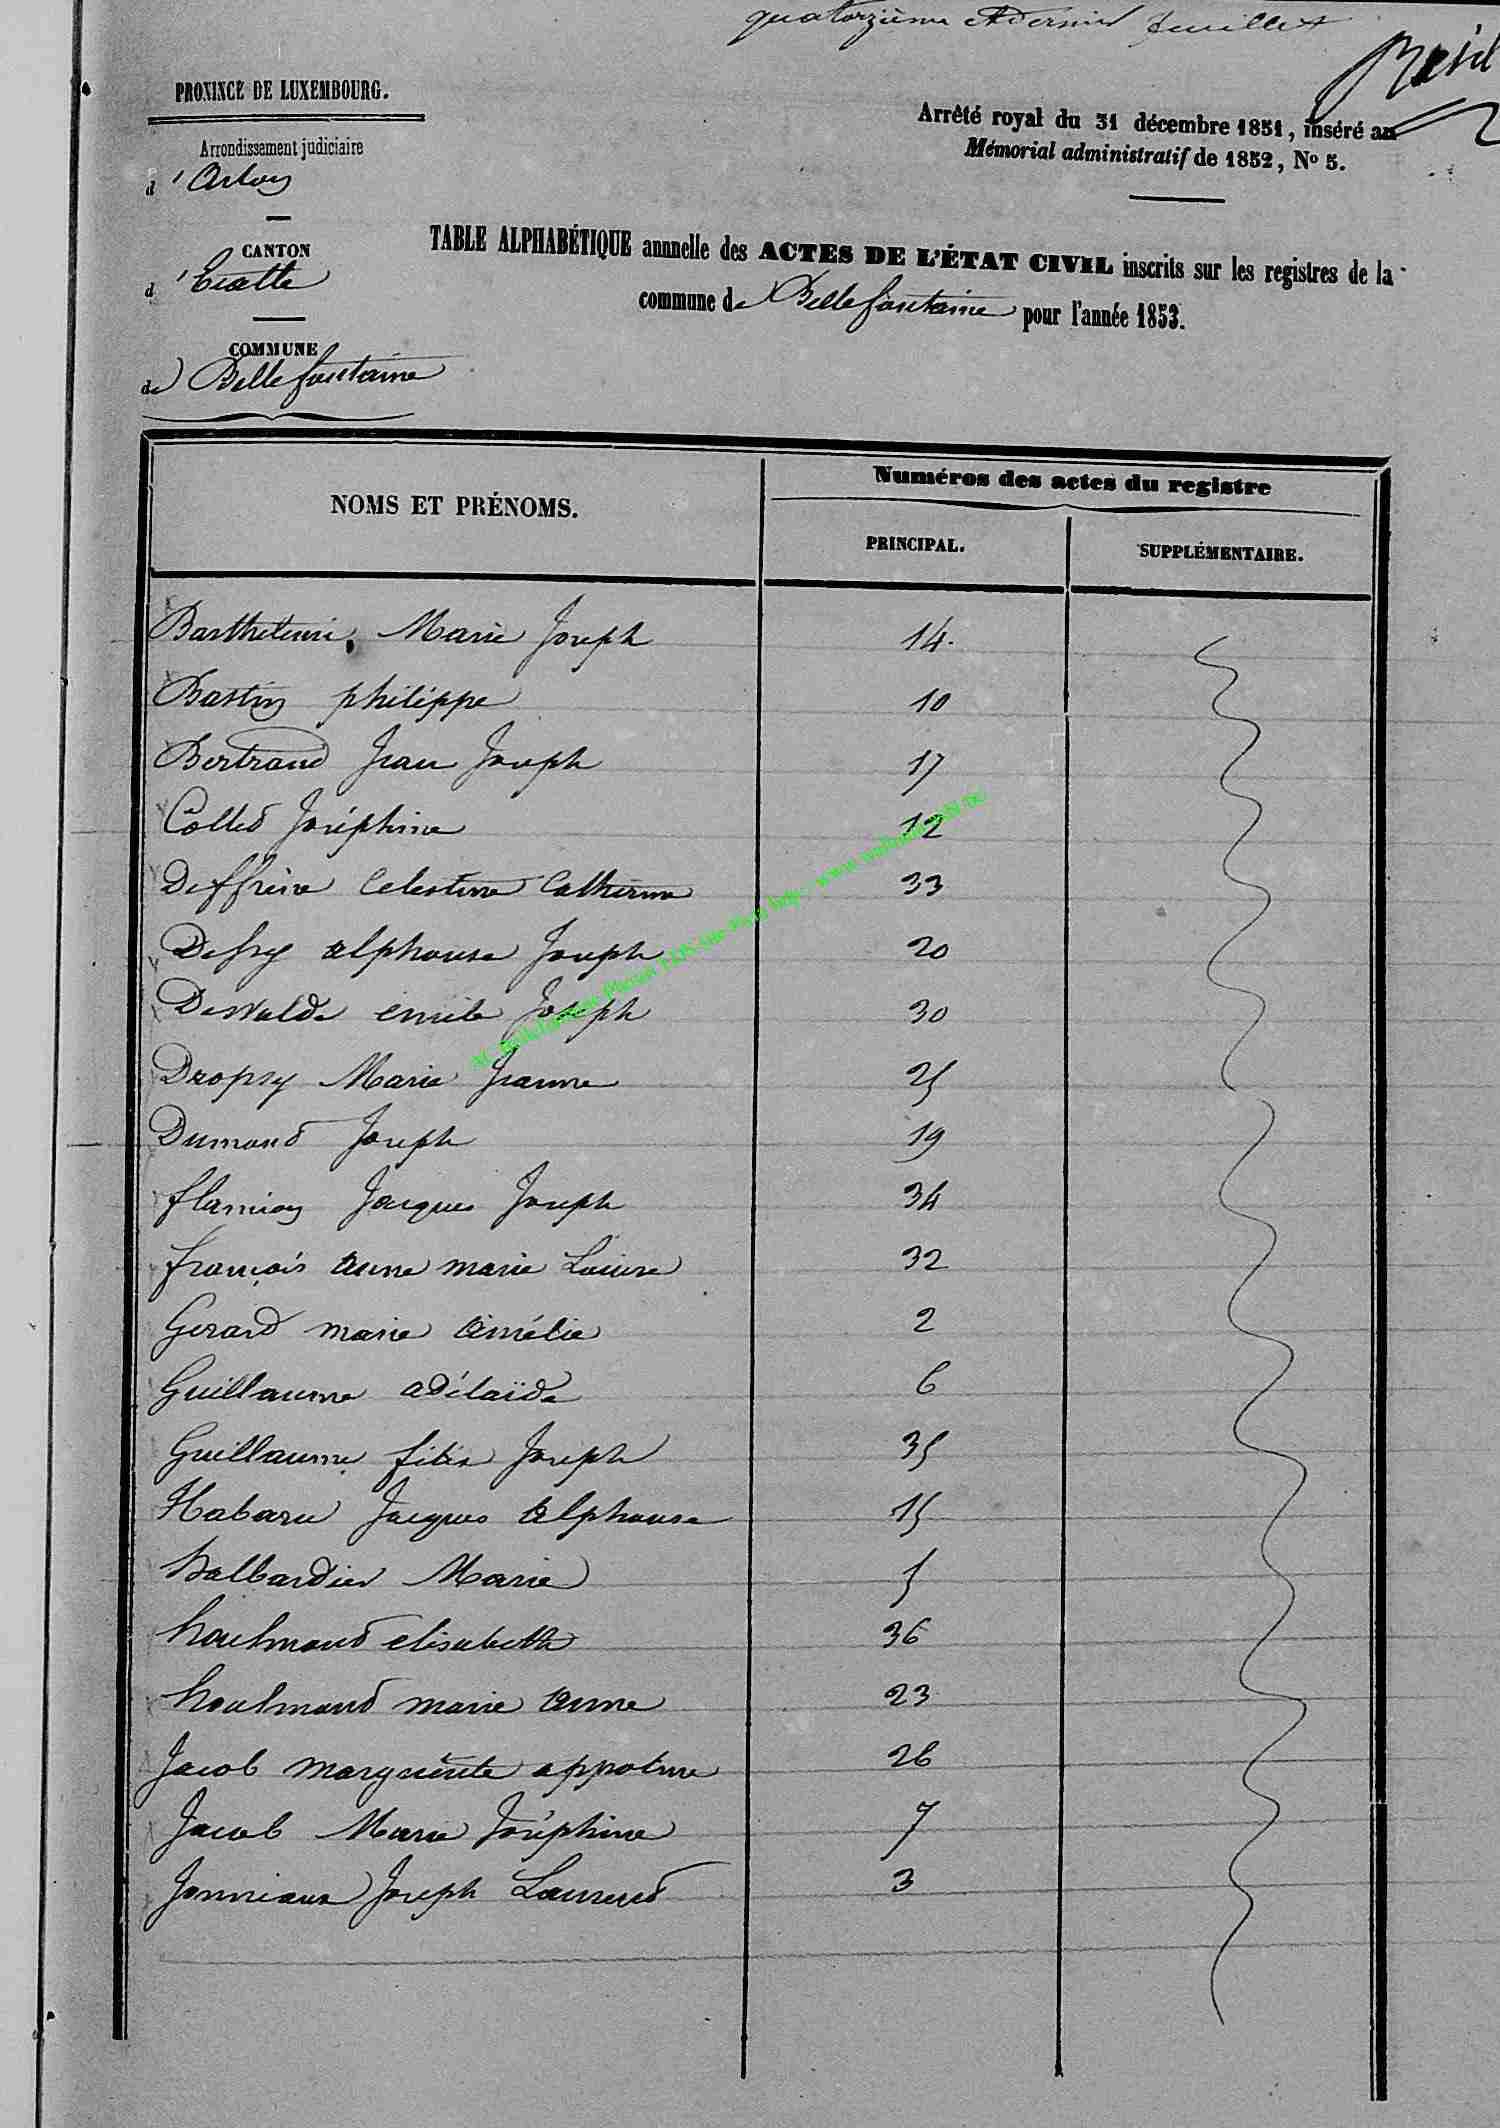 quatorzième et dernier feuillet
PROVINCE DE LUXEMBOURG.
Arrêté royal du 31 décembre 1851, inséré au
Mémorial administratif de 1852, No 5.
Arrondissement judiciaire
d'Arlon
CANTON
d'Etalle
TABLE ALPHABÉTIQUE annnelle des ACTES DE L'ÉTAT CIVIL inscrits sur les registres de la
commune de Bellefontaine pour l'année 1853.
COMMUNE
de Bellefontaine
NOMS ET PRÉNOMS.
Numéros des actes du registre
PRINCIPAL.
SUPPLÉMENTAIRE.
Barthelemi, Marie Joseph 14.
Bastin philippe 10
Bertrand Jean Joseph 17
Collet Joséphine 12
Deffrène Celestine Catherine 33
Alphonse Joseph 20
émile Joseph 30
Dropsy Marie Jeanne 25
Dumond Joseph 19
flamion Jacques Joseph 34
françois Anne marie Louise 32
Gerard marie Amélie 2
Guillaume Adélaïde 6
Guillaume félix Joseph 35
Habaru Jacques Alphonse 15
halbardier Marie 5
houlmond elisabeth 36
houlmond marie Anne 23
Jacob marguérite appoline 26
Jacob Marie Joséphine 7
Jonniaux Joseph Laurend 3